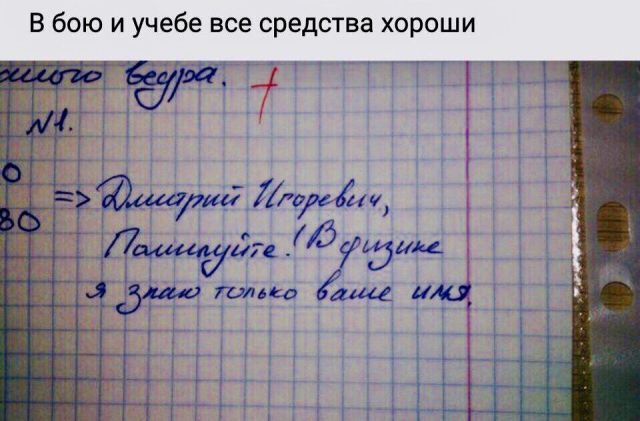 В бою и учебе все средства хороши
ведра.
№1.
0
=> Дмитрий Игоревич,
80
Помилуйте! В физике
я знаю только ваше имя.